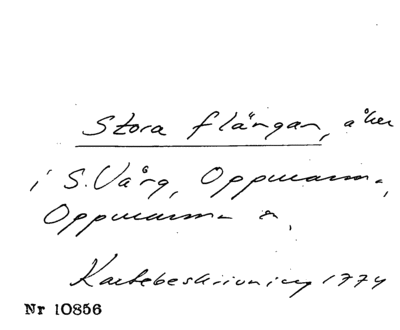 Stora flängan, åker
i S. Vång, Oppmanna,
Oppmanna sn,
Kartebeskrivning 1774
Nr 10856